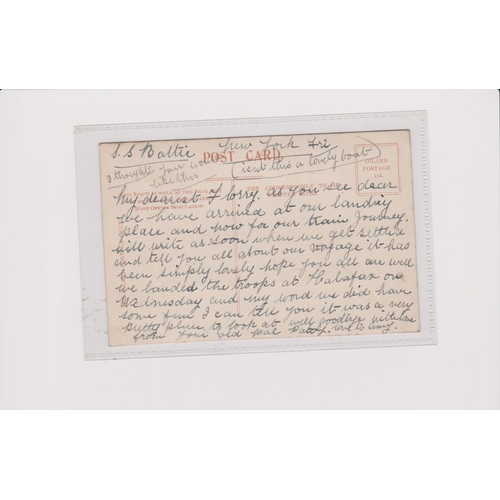 S.S Baltic New York Fri
POST CARD
I thought you would like this
(isnt this a lovely boat)
INLAND POSTAGE
My dearest Florry. as you see dear
we have arrived at our landing
place and now for our train Journey.
will write as soon when we get settled
and tell you all about our voyage it has
been simply lovely hope you all are well
we landed the troops at Halafax on
Wednesday and my word we did have
some fun I can tell you it was a very
pretty place to look at. well goodbye with love
from your old pal